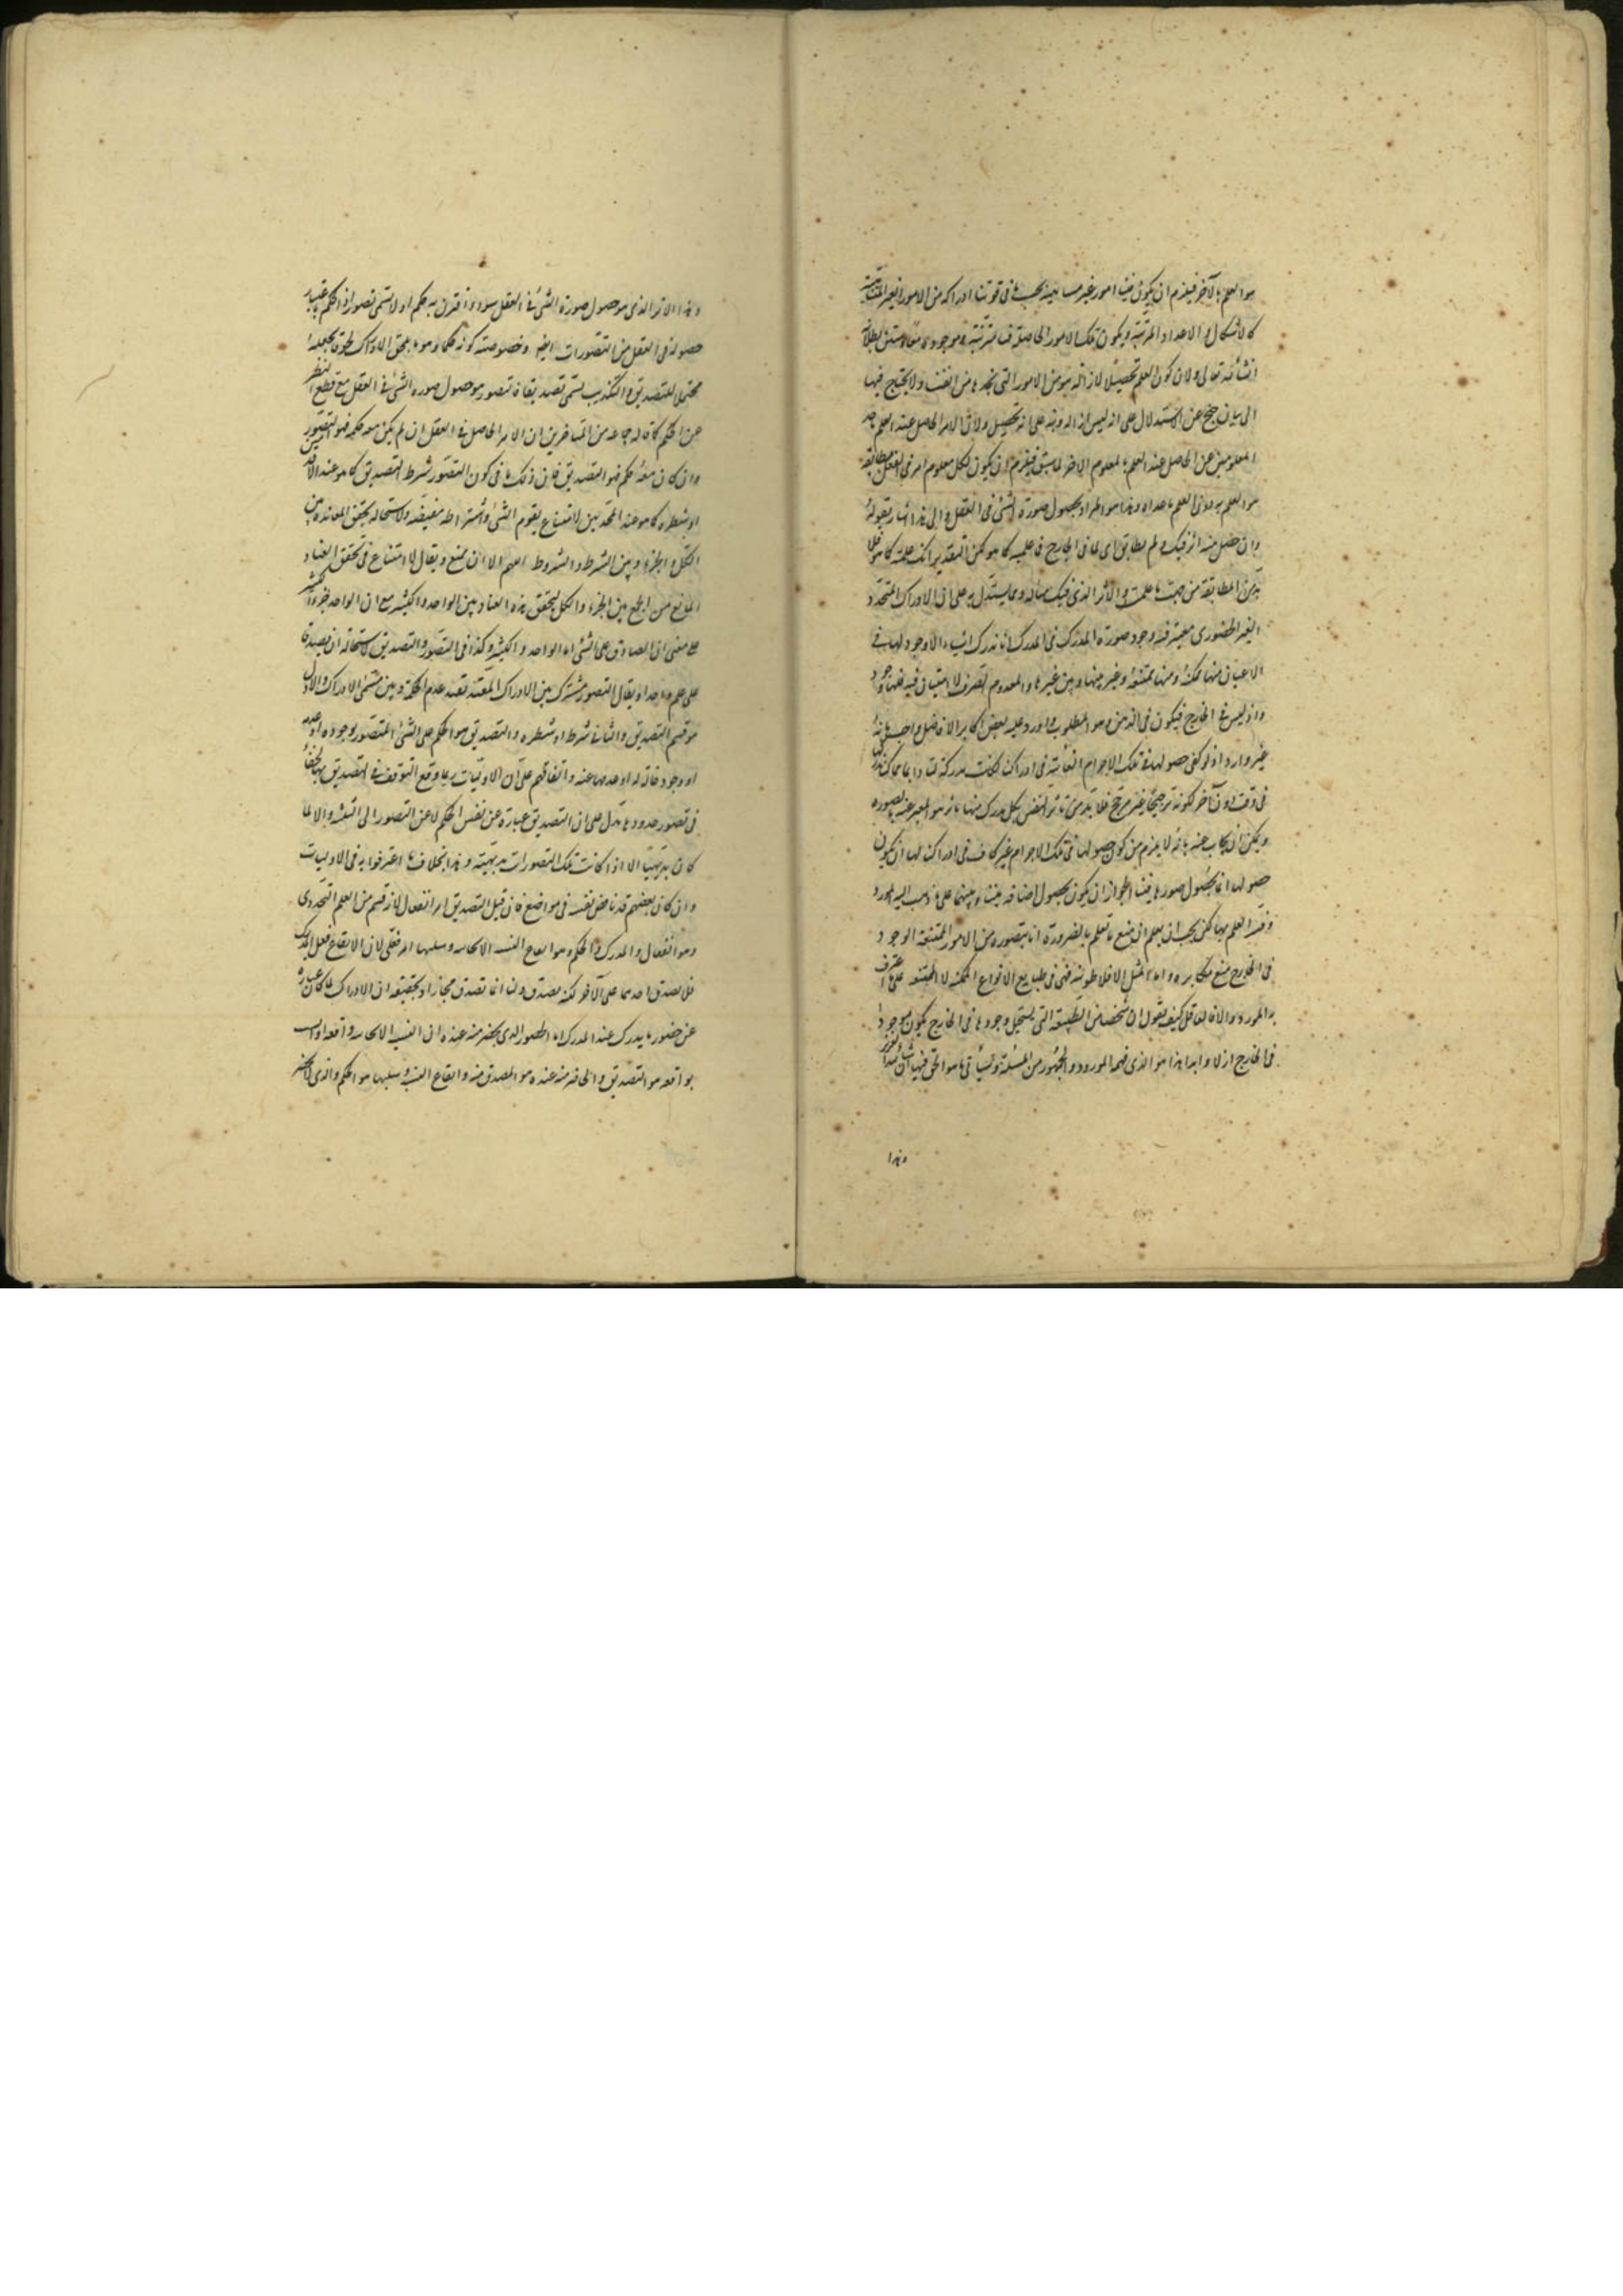 هو العلم بالآخر فيلزم ان يكون فينا امور غير متناهية بحسب ما في قوتنا ادراكه من الامور الغير المتناهية
كالاشكال والاعداد المترتبة ويكون تلك الامور الحاصلة فينا مترتبة موجودة معا وستبين بطلانه
انشاء الله تعالى ولان كون العلم تحصيلا لا ازالة هو من الامور التي نجدها من انفسنا ولا يحتاج فيها
الى بيان حجج عن الاستدلال على انه ليس ازالة ونبه على انه تحصيل ولان الامر الحاصل عند العلم باحد
المعلومين غير الحاصل عند العلم بالمعلوم الاخر لما سبق فيلزم ان يكون لكل معلوم امر في العقل يطابقه
هو العلم به دون العلم بما عداه وهذا هو المراد بحصول صورة الشئ في العقل والى هذا اشار بقوله
وان حصل منه اثر فيك ولم يطابق اى لما في الخارج فما علمته كما هو لكن التقدير انك علمته كما هو فلا
بد من المطابقة من جهة ما علمت والاثر الذي فيك مثاله ومما يستدل به على ان الادراك المتجدد
الغير الحضوري يعتبر فيه وجود صورة المدرك في المدرك انا ندرك اشياء لا وجود لها في
الاعيان منها ممكنة ومنها ممتنعة ونميز بينها وبين غيرها والمعدوم الصرف لا امتياز فيه فلها وجود
واذ ليس في الخارج فيكون في الذهن وهو المطلوب واورد عليه بعض اكابر الافاضل واجيب بانه
غير وارد اذ لو كفى حصولها في تلك الاجرام الغائبة في ادراكنا لكانت مدركة لنا دائما
في وقت دون آخر لكونه ترجيحا بغير مرجح فلا بد من تاثر النفس بكل مدرك منها تاثرا هو المعبر عنه بالصورة
ويمكن ان يجاب عنه بانه لا يلزم من كون حصولها في تلك الاجرام غير كاف في ادراكنا لها ان يكون
حصولها انما بحصول صورها فينا لجواز ان يكون بحصول اضافة بيننا وبينها على ما ذهب اليه المورد
وفسر العلم بها لكن يجب ان يعلم ان منع ما نعلم بالضرورة انا نتصوره من الامور الممتنعة الوجود
في الخارج منع مكابرة واما المثل الافلاطونية فهي في طبايع الانواع الممكنة لا الممتنعة على ما اعترف
به المورد والا فالعاقل كيف يقول ان شخصا من الطبيعة التي يستحيل وجودها في الخارج يكون موجودا
في الخارج ازلا وابدا هذا هو الذي فهمه المورد والجمهور من المسئلة وسيأتي ما هو الحق فيها ان شاء الله العزيز
وهذا
وهذا الاثر الذي هو حصول صورة الشئ في العقل سواء اقترن به حكم او لا تسمى تصورا اذ الحكم باعتبار
حصوله في العقل من التصورات ايضا وخصوصية كونه حكما وهو ما يلحق الادراك لحوقا يجعله
محتملا للتصديق والتكذيب تسمى تصديقا فالتصور هو حصول صورة الشئ في العقل مع قطع النظر
عن الحكم لا كما قاله جماعة من المتأخرين ان الامر الحاصل في العقل ان لم يكن معه حكم فهو التصور
وان كان معه حكم فهو التصديق فان ذلك ينافي كون التصور شرط التصديق كما هو عند الاقدمين
او شطره كما هو عند المحدثين لامتناع تقوم الشئ واشتراطه بنقيضه ولاستحالة تحقق المعاندة بين
الكل والجزء وبين الشرط والمشروط اللهم الا ان يمنع ويقال لا امتناع في تحقق العناد
المانع من الجمع بين الجزء والكل لتحقق هذه العناد بين الواحد والكثير مع ان الواحد جزء الكثير
على معنى ان الصادق على الشئ اما الواحد او الكثير وكذا في التصور والتصديق لاستحالة ان يصدقا
على علم واحد او يقال التصور مشترك بين الادراك المقيد بقيد عدم الحكم وبين مسمى الادراك والاول
هو قسيم التصديق والثاني شرطه او شطره والتصديق هو الحكم على الشئ المتصور بوجوده او عدمه
او وجود حالة له او عدمها عنه واتفاقهم على ان الاوليات ربما وقع التوقف في التصديق بها لخفاء
في تصور حدودها تدل على ان التصديق عبارة عن نفس الحكم لا عن التصورات الثلاثة والا لما
كان بديهيا الا اذا كانت تلك التصورات بديهية وهذا بخلاف ما اعترفوا به في الاوليات
وان كان بعضهم قد ناقض نفسه في مواضع فان قيل التصديق امر انفعالي لانه قسم من العلم التجددي
وهو انفعال والمدرك والحكم وهو ايقاع النسبة الايجابية وسلبها امر فعلي لان الايقاع فعل المدرك
فلا يصدق احدهما على الآخر لكنه يصدق قلنا انما تصدق مجازا وتحقيقه ان الادراك لما كان عبارة
عن حضور ما يدرك عند المدرك اما الحضور الذي يحضر منه عنده ان النسبة الايجابية واقعة او ليست
بواقعة هو التصديق والحاضر منه عنده هو المصدق منه وايقاع النسبة وسلبها هو الحكم والذي لا يحضر